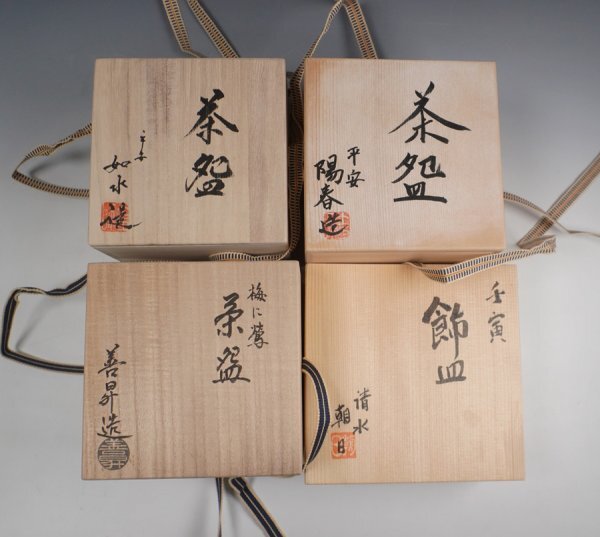 茶盌
平安
如水造
茶盌
平安
陽春造
梅に鶯
茶盌
善昇造
壬寅
飾皿
清水
朝日